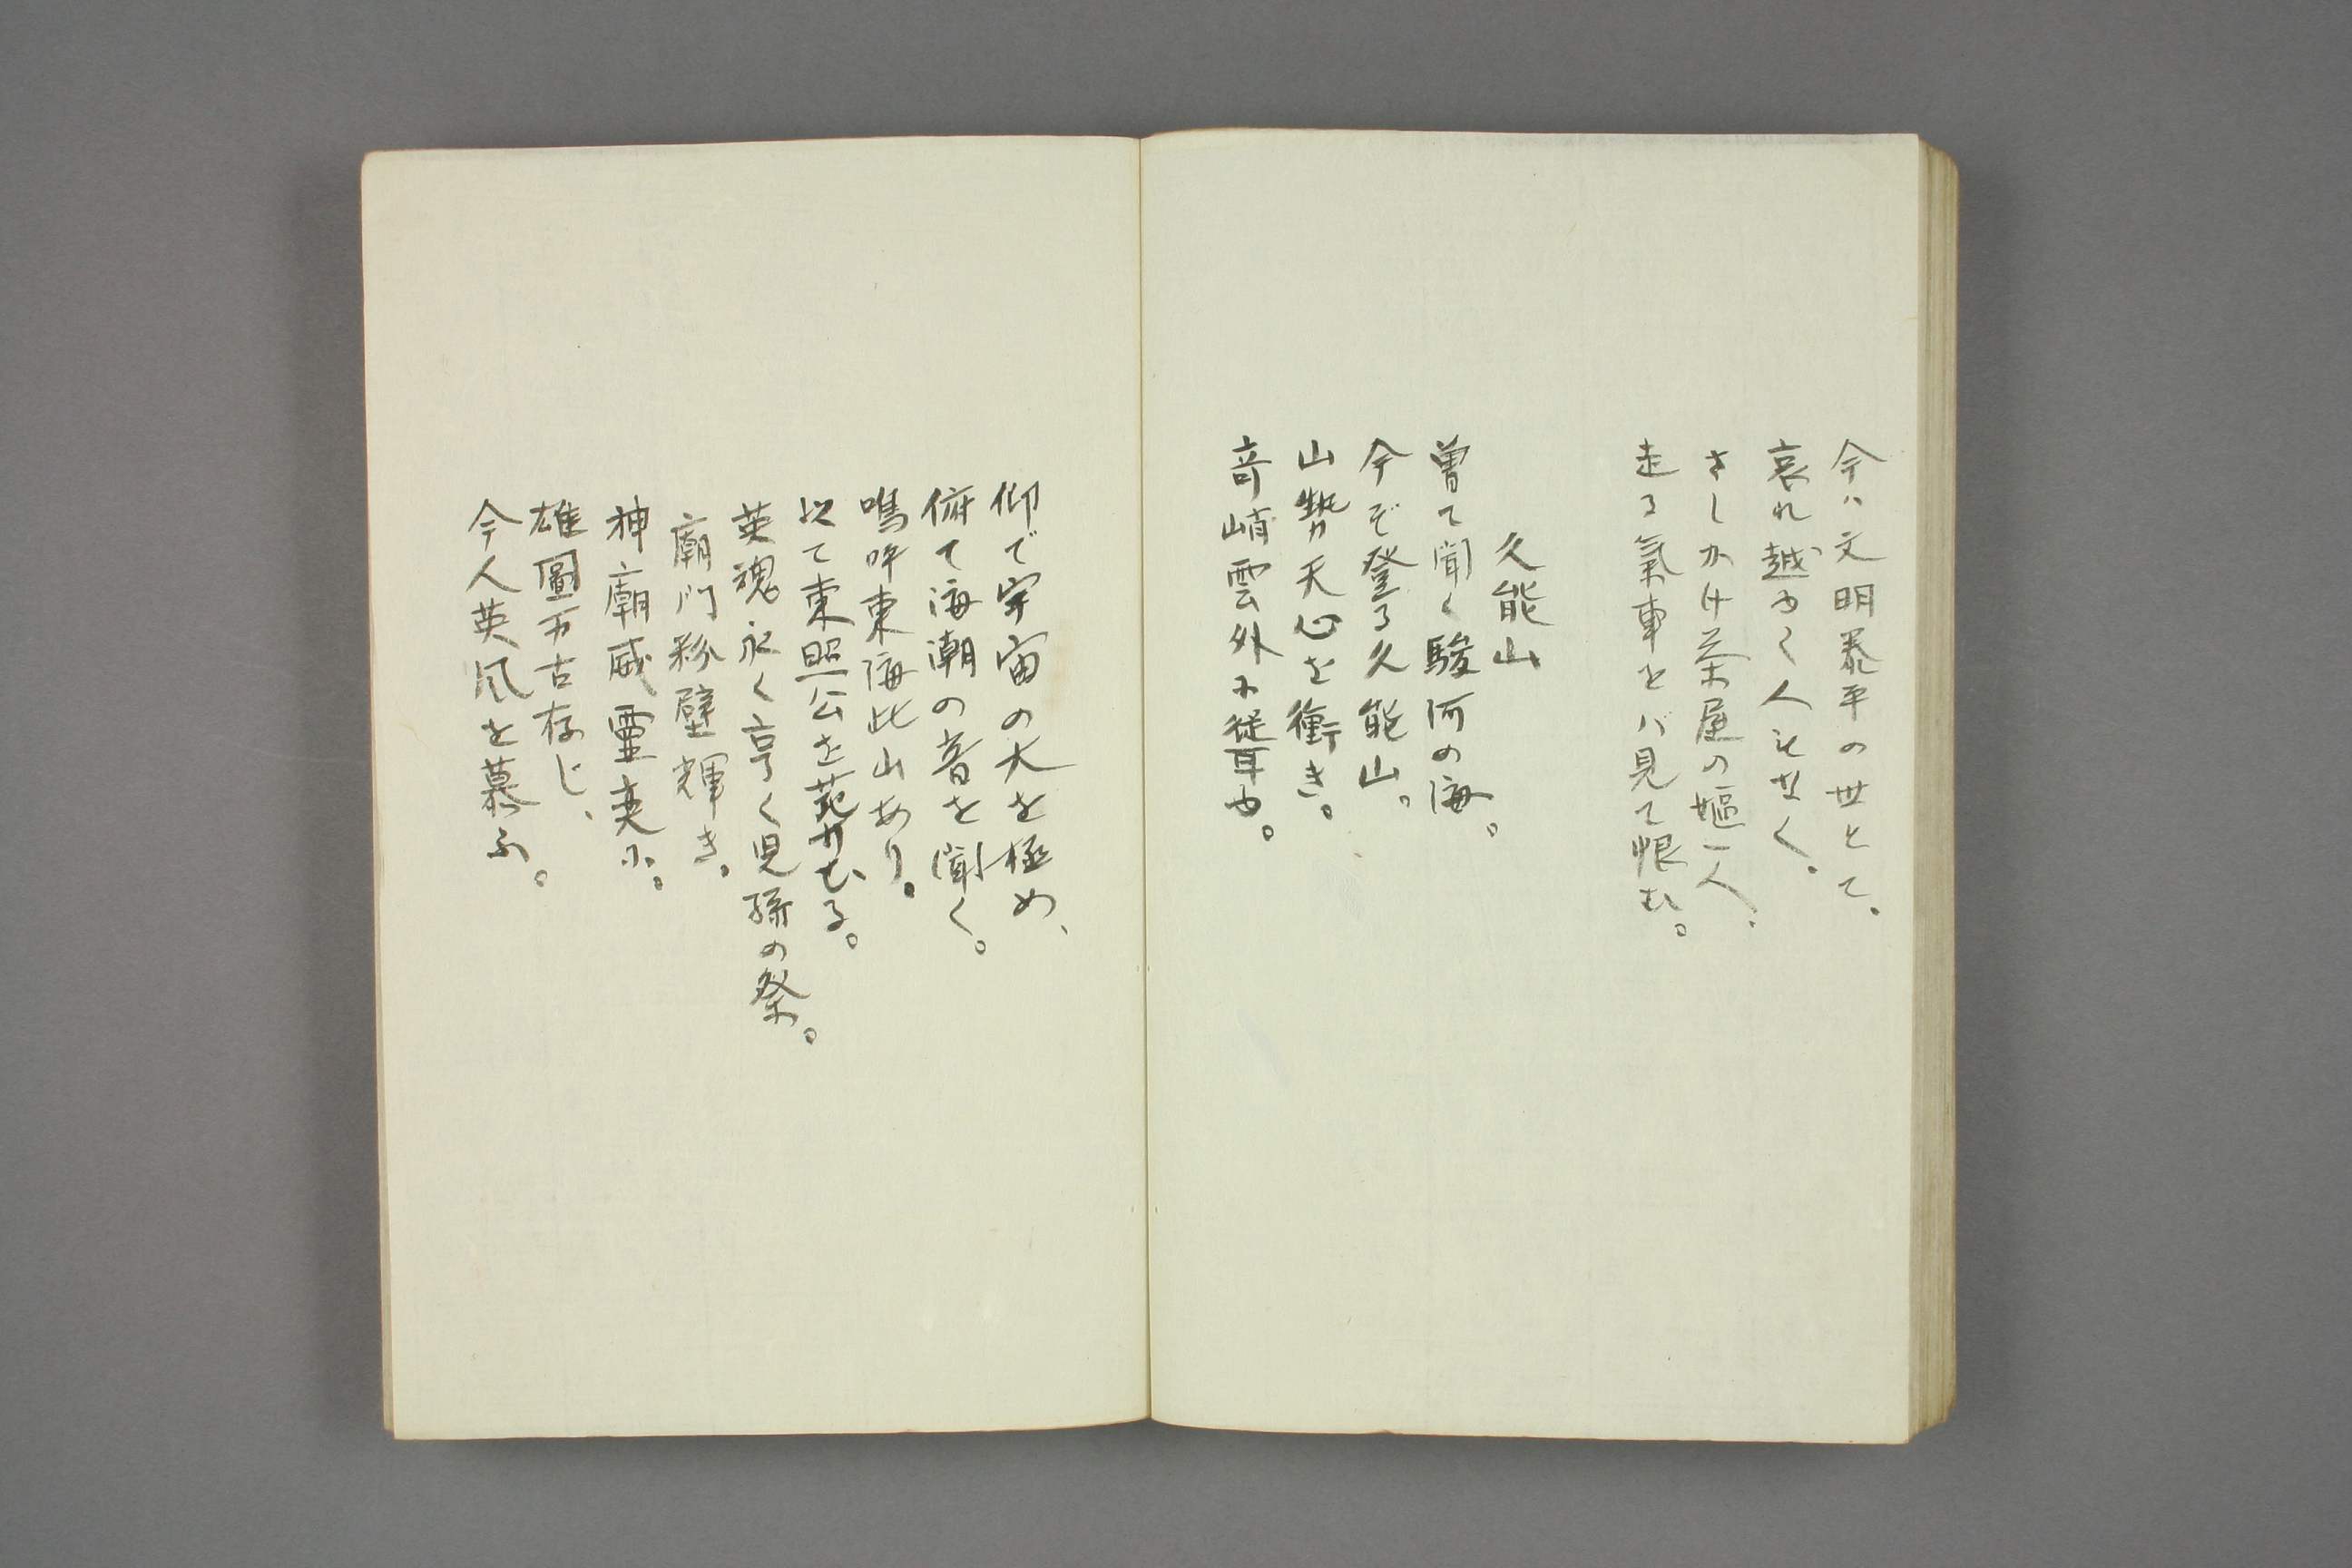 今ハ文明泰平の世とて。
哀れ越ゆく人もなく。
さしかけ茶屋の嫗一人、
走る氣車をバ見て恨む。
久能山
曽て聞く駿河の海。
今ぞ登る久能山。
山勢天心を衝き。
竒峭雲外に聳ゆ。
仰で宇宙の大を極め、
俯て海潮の音を聞く。
嗚呼東海此山あり。
以て東照公を葬むる。
英魂永く享く児孫の祭。
廟門粉壁輝き。
神廟威靈奕ふ。
雄圖万古存じ、
今人英风を慕ふ。